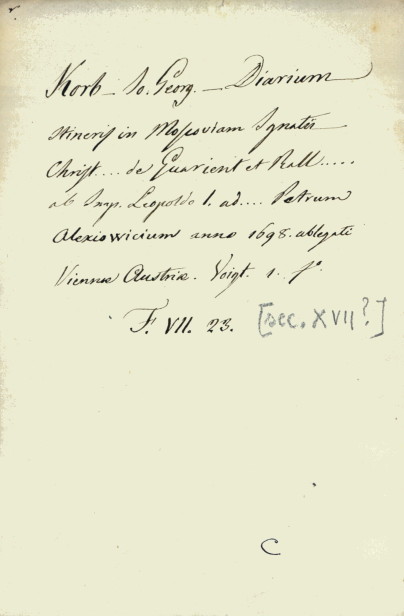 Korb – Io. Georg. – Diarium
Itineris in Moscoviam Ignatii
Christ.... de Guarient et Rall.....
ab Imp. Leopoldo I. ad.... Petrum
Alexiowicium anno 1698. ablegati
Viennæ Austriæ. Voigt. 1. fº.
F. VII. 23. [sec. XVII?]
C